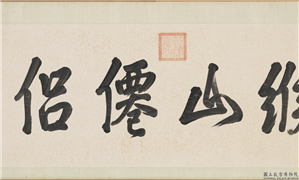 山僊侶
國立故宮博物院